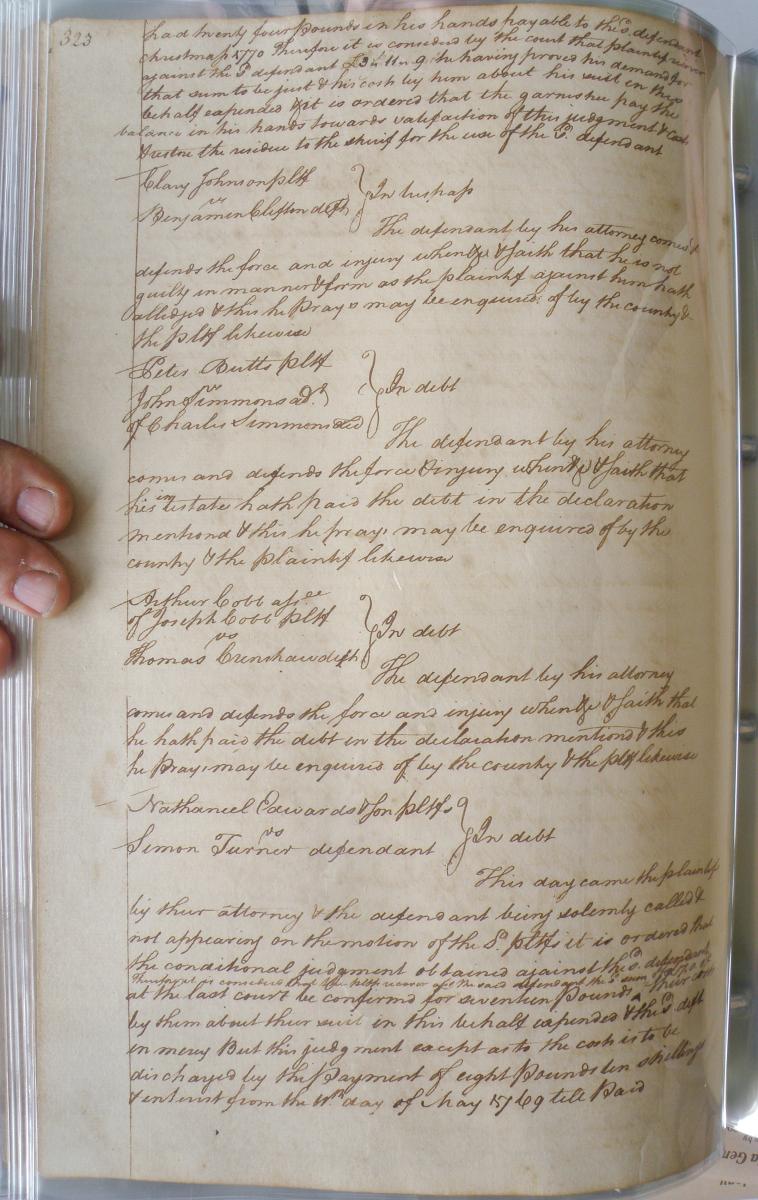 323
had twenty four Pounds in his hands payable to the Sd. defendant
christmas 1770 Therefore it is considered by the court that plaintif recover
against the Sd defendant £3" 11 " 9 he having proved his demand for
that sum to be just & his cost by him about his suit in this
behalf expended & it is ordered that the garnishee pay the
balance in his hands towards satisfaction of this judgment & cost
& restore the residue to the shirif for the use of the Sd. defendant
Clary Johnson pltf
vs
In trespass
Benjamin Clifton deft
The defendant by his attorney comes &
defends the force and injury when &c & saith that he is not
guilty in manner & form as the plaintif against him hath
alledged & this he Prays may be enquired of by the country &
the pltf likewise
Peter Butts pltf
vs
John Simmons ad.r
In debt
of Charles Simmons ded
The defendant by his attorney
comes and defends the force & injury when &c & saith that
his intestate hath paid the debt in the declaration
mentiond & this he prays may be enquired of by the
country & the plaintif likewise
Arthur Cobb assee
of Joseph Cobb pltf
vs
In debt
Thomas Crenshaw deft
The defendant by his attorney
comes and defends the force and injury when &c & saith that
he hath paid the debt in the declaration mentiond & this
he Prays may be enquired of by the country & the pltf likewise
Nathaneel Edwards & son pltfs
vs
In debt
Simon Turner defendant
This day came the plaintifs
by thur attorney & the defendant being solemly called &
not appearing on the motion of the Sd. pltfs it is ordered that
the conditional judgment obtained against the Sd. defendant
Therefore it is considered that the pltfs recover agt the said defendant the Sd sum of
at the last court be confirmed for seventeen Pounds & thur costs
by them about thur suit in this behalf expended & the Sd deft
in mercy But this judgment except as to the cost is to be
discharged by the Payment of eight Pounds ten shillings
& interest from the day of May 1769 till Paid